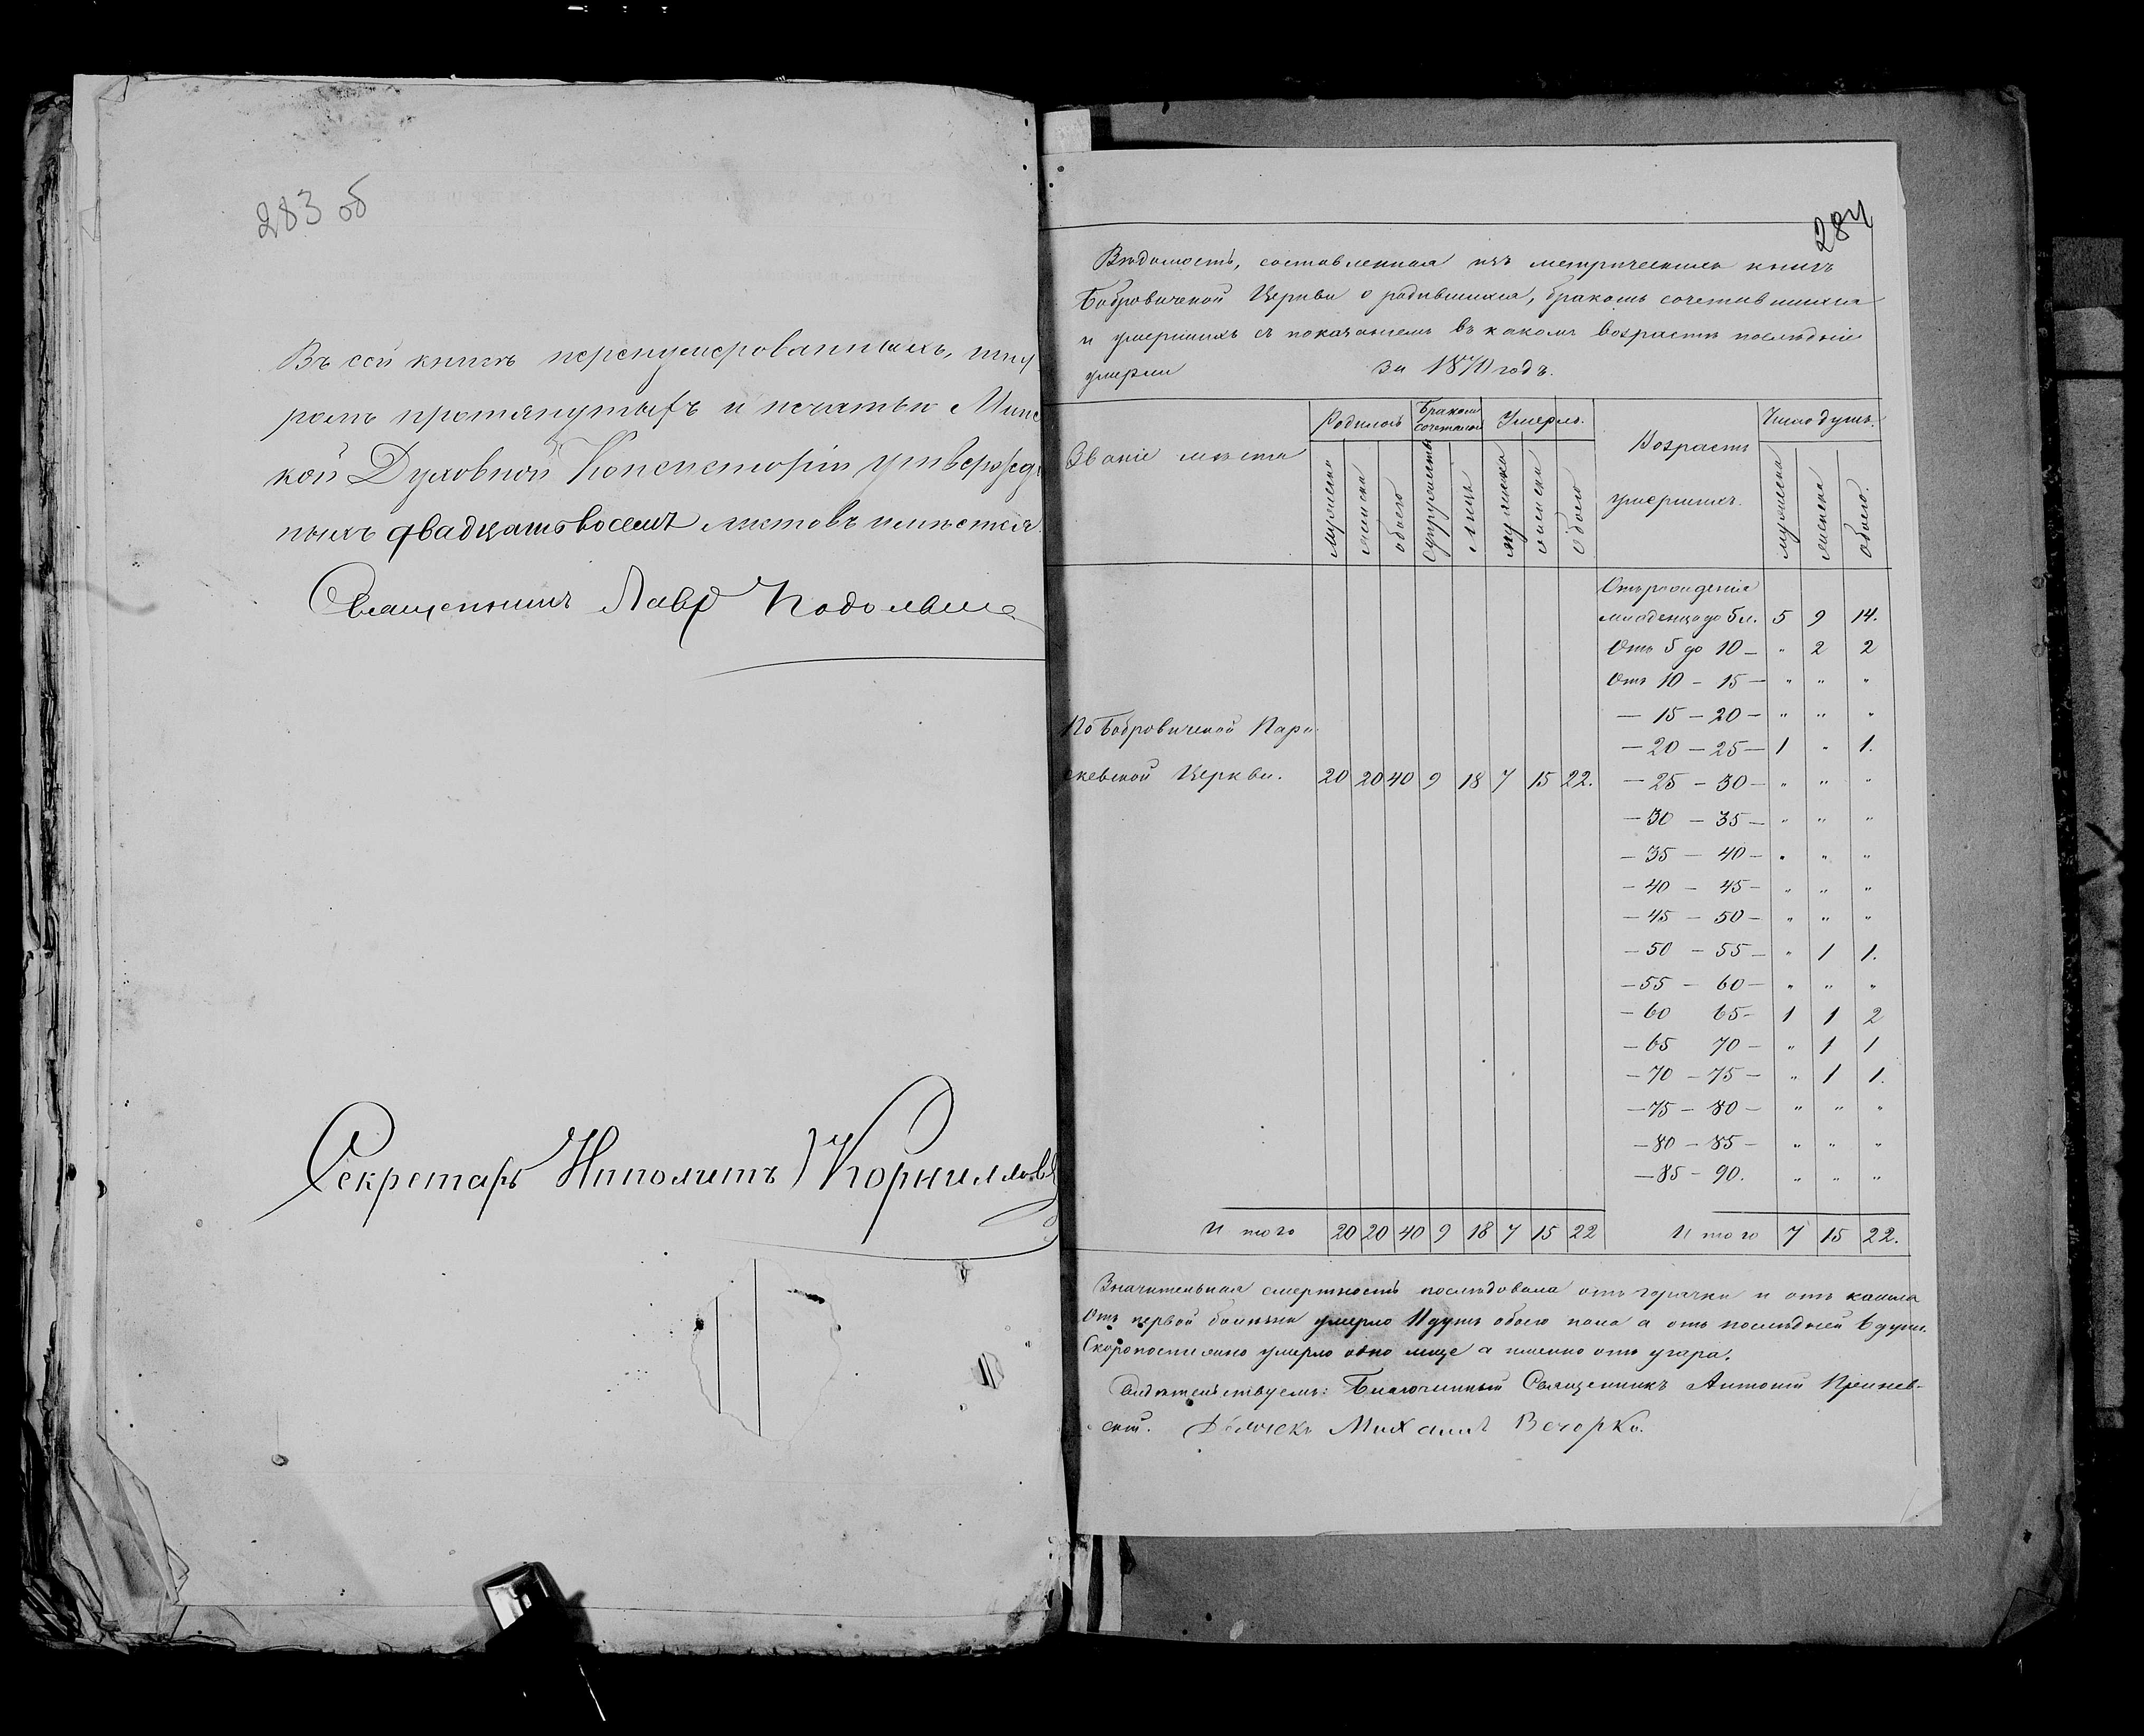 283 об
Въ сей книгѣ перенумерованныхъ, шну
ромъ протянутыхъ и печатью Минс
кой Духовной Консисторіи утвержд
ныхъ двадцать восемь листовъ имѣется.
Священникъ Лавр
Секретарь Ипполитъ Корниллов
284
Вѣдомость, составленная изъ метрическихъ книгъ
Бобровичской Церкви о родившихся, бракомъ сочетавшихся
и умершихъ съ показаніемъ въ какомъ возрасте послѣдніе
умерли за 1870 годъ.
Званіе мѣста
Родилось
Бракомъ сочеталось
Умерло.
Возрастъ умершихъ.
Число душъ.
мужеска женска обоего супружествъ лицъ мужеска женска обоего
мужеска женска обоего.
Отъ рожденія
младенца до 5 л. 5 9 14.
Отъ 5 до 10 — " 2 2
Отъ 10 – 15 — " " "
— 15 – 20 – " " "
По Бобровичской Пара
— 20 – 25 — 1 " 1.
скевской Церкви. 20 20 40 9 18 7 15 22.
— 25 – 30 — " " "
— 30 – 35 — " " "
— 35 – 40 — " " "
— 40 – 45 — " " "
— 45 – 50 — " " "
— 50 – 55 — " 1 1.
— 55 – 60 — " " "
— 60 65 – 1 1 2
— 65 70 — " 1 1
— 70 – 75 — " 1 1.
— 75 – 80 — " " "
— 80 – 85 — " " "
— 85 – 90. " " "
И того 20 20 40 9 18 7 15 22
И того 7 15 22.
Значительная смертность послѣдовала отъ горячки и отъ кашля
Отъ первой болѣзни умерло 11 душъ обоего пола а отъ послѣдней 6 душ.
Скоропостижно умерло одно лице а именно отъ угара.
Свидѣтельствуемъ: Благочинный Священникъ Антоній
скій. Дьячекъ Михаилъ Вечорко.